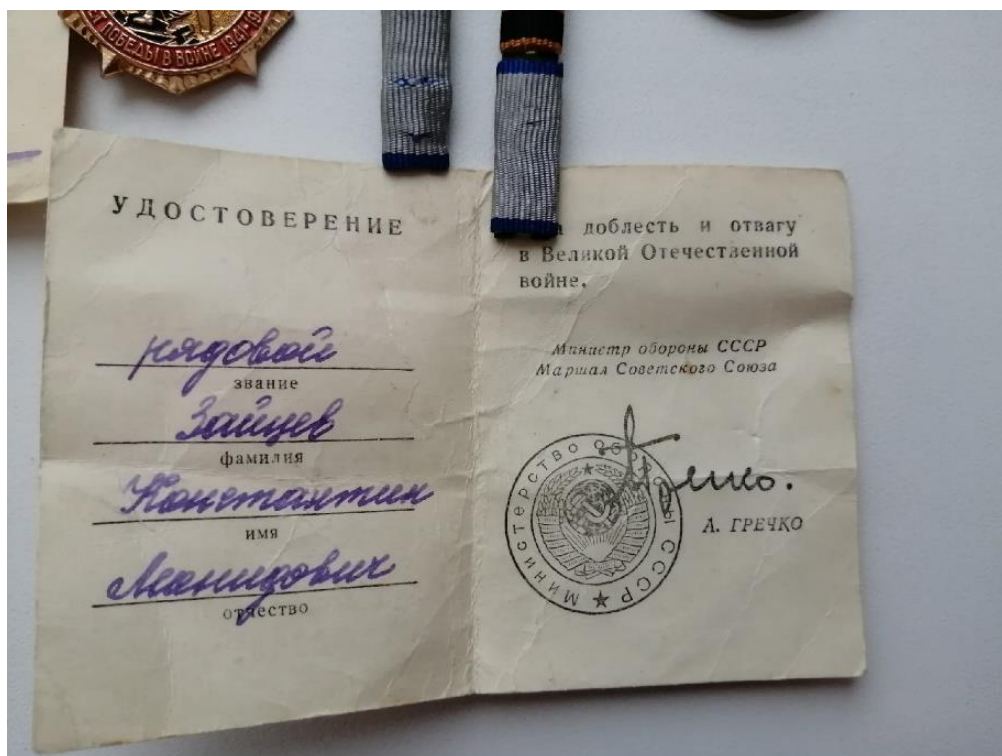 ЛЕТ ПОБЕДЫ В ВОЙНЕ 1941-19
УДОСТОВЕРЕНИЕ
рядовой
звание
Зайцев
фамилия
Константин
имя
Леонидович
отчество
доблесть и отвагу
в Великой Отечественной
войне.
Министр обороны СССР
Маршал Советского Союза
МИНИСТЕРСТВО ОБОРОНЫ СССР
А. ГРЕЧКО